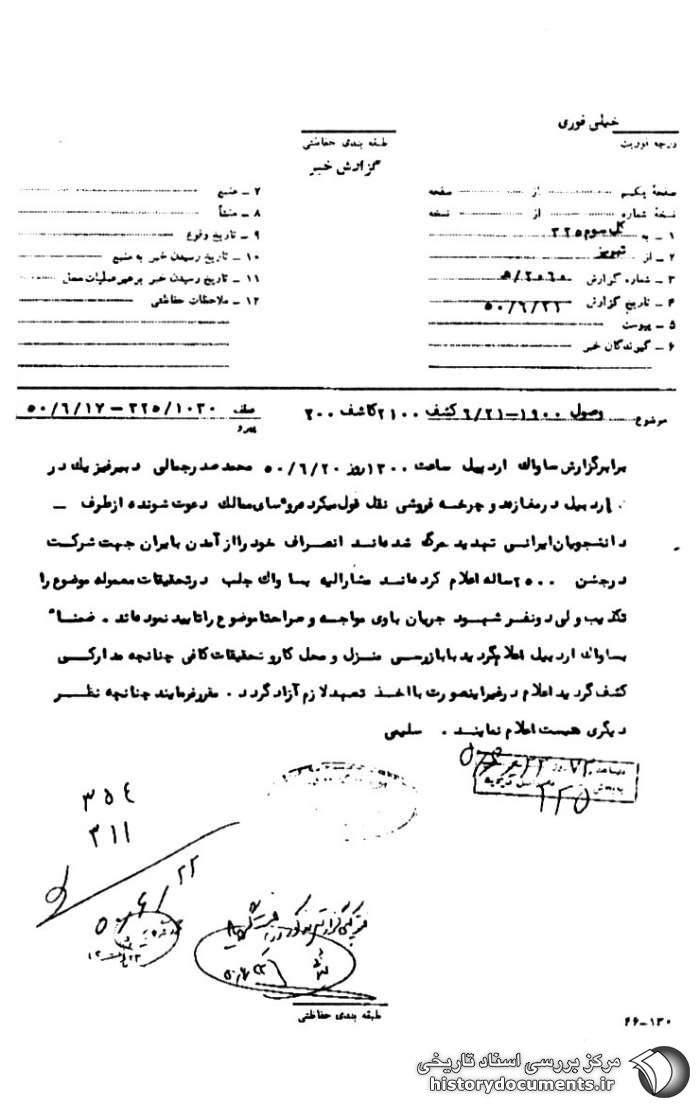 خیلی فوری
درجه فوریت
طبقه بندی حفاظتی
گزارش خبر
صفحهٔ یکم از صفحه
نسخهٔ شماره از نسخه
۱ ـ به کل سوم ۳۲۵
۲ ـ از تبریز
۳ ـ شماره گزارش
۴ ـ تاریخ گزارش ۵۰/۶/۲۱
۵ ـ پیوست
۶ ـ گیرندگان خبر
۷ ـ منبع
۸ ـ منشأ
۹ ـ تاریخ وقوع
۱۰ ـ تاریخ رسیدن خبر به منبع
۱۱ ـ تاریخ رسیدن خبر برهبر عملیات محل
۱۲ ـ ملاحظات حفاظتی
موضوع وصول ۱۹۰۰-۶/۲۱ کشف ۲۱۰۰ کاشف ۲۰۰
عطف ۳۲۵/۱۰۳۰-۵۰/۶/۱۷
پیرو
برابر گزارش ساواک اردبیل ساعت ۱۳۰۰ روز ۵۰/۶/۲۰ محمد صدرجمالی دبیر فیزیک در
اردبیل در مغازه دوچرخه فروشی نقل قول میکرد که روسای ممالک دعوت شونده از طرف ـ
دانشجویان ایرانی تهدید بمرگ شده‌اند انصراف خود را از آمدن بایران جهت شرکت
در جشن ۲۵۰۰ ساله اعلام کرده‌اند مشارالیه بساواک جلب در تحقیقات معموله موضوع را
تکذیب ولی دو نفر شهود جریان باوی مواجهه و صراحتا موضوع را تایید نموده‌اند . ضمنا"
بساواک اردبیل اعلام گردید با بازرسی منزل و محل کار و تحقیقات کافی چنانچه مدارکی
کشف گردید اعلام در غیر اینصورت با اخذ تعهد لازم آزاد گردد . مقرر فرمایند چنانچه نظر
دیگری هست اعلام نمایند . سلیمی
۳۲۵
۳۵۴
۳۱۱
۵۰/۶/۲۲
طبقه بندی حفاظتی
۴۶-۱۳۰
مرکز بررسی اسناد تاریخی
historydocuments.ir